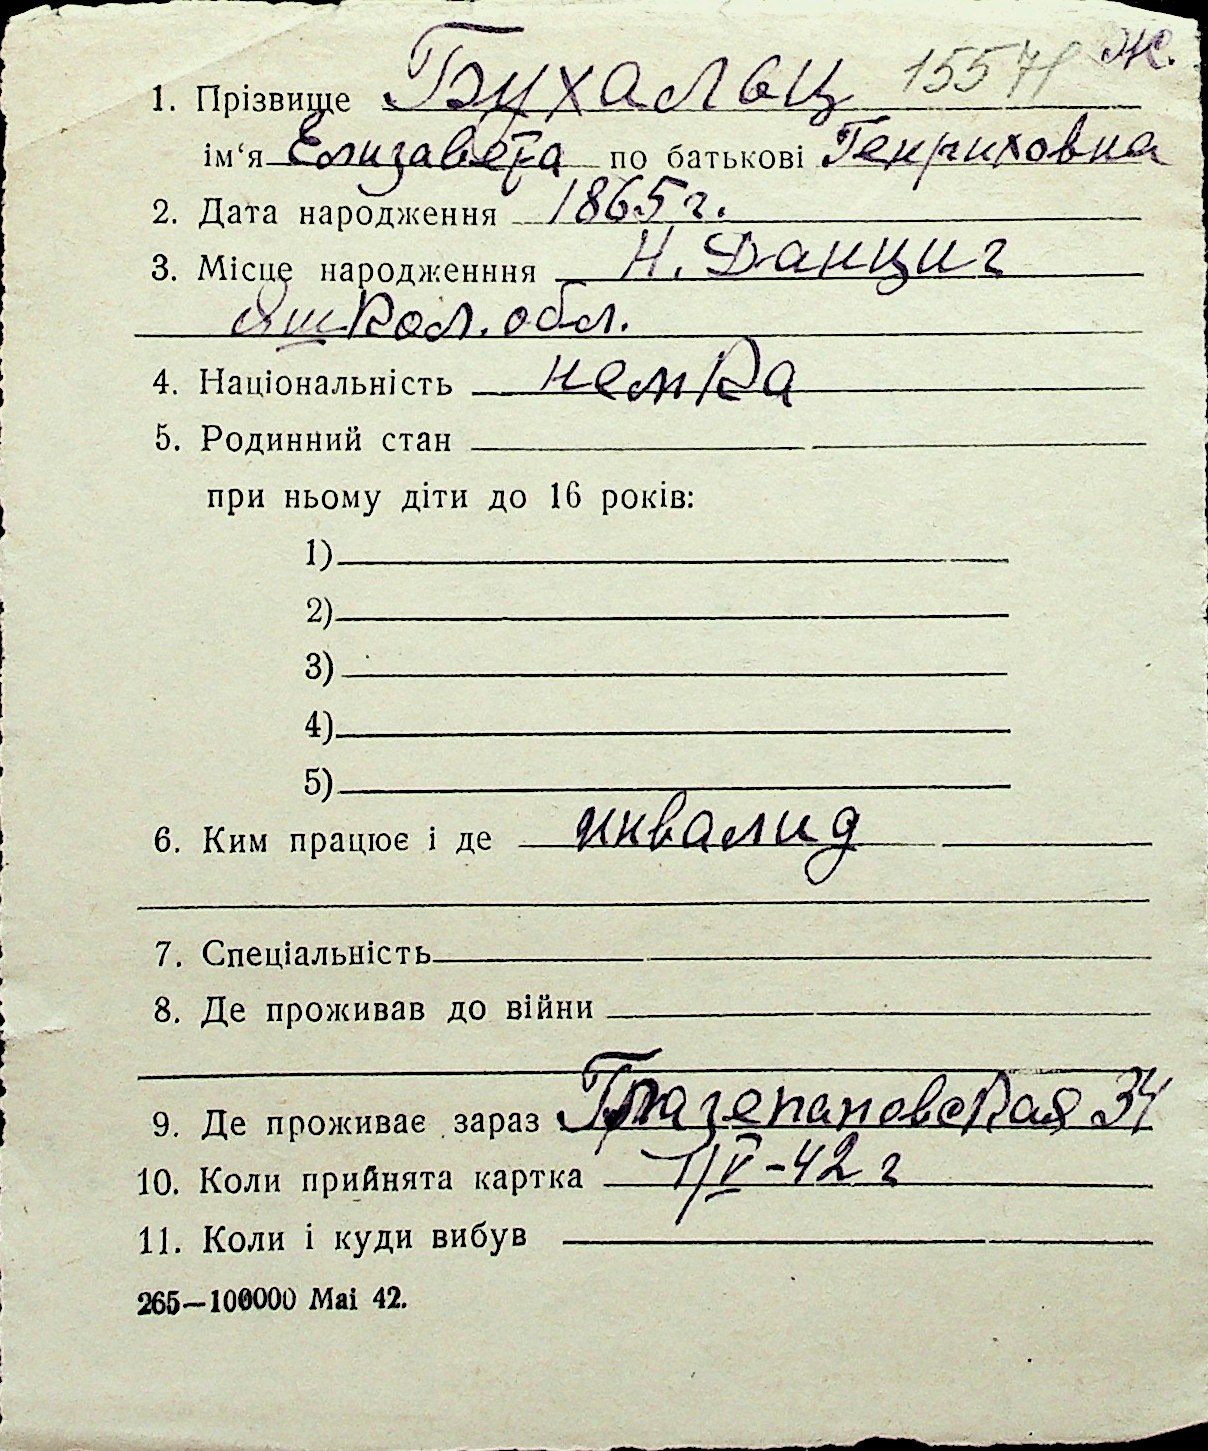 1. Прізвище Бухальц 15571 Ж.
ім‘я Елизавета по батькові Генриховна
2. Дата народження 1865 г.
3. Місце народженння Н. Данциг
обл.
4. Національність немка
5. Родинний стан
при ньому діти до 16 років:
1)
2)
3)
4)
5)
6. Ким працює і де инвалид
7. Спеціальність
8. Де проживав до війни
9. Де проживає зараз 34
10. Коли прийнята картка 1/V-42 г
11. Коли і куди вибув
265—100000 Mai 42.